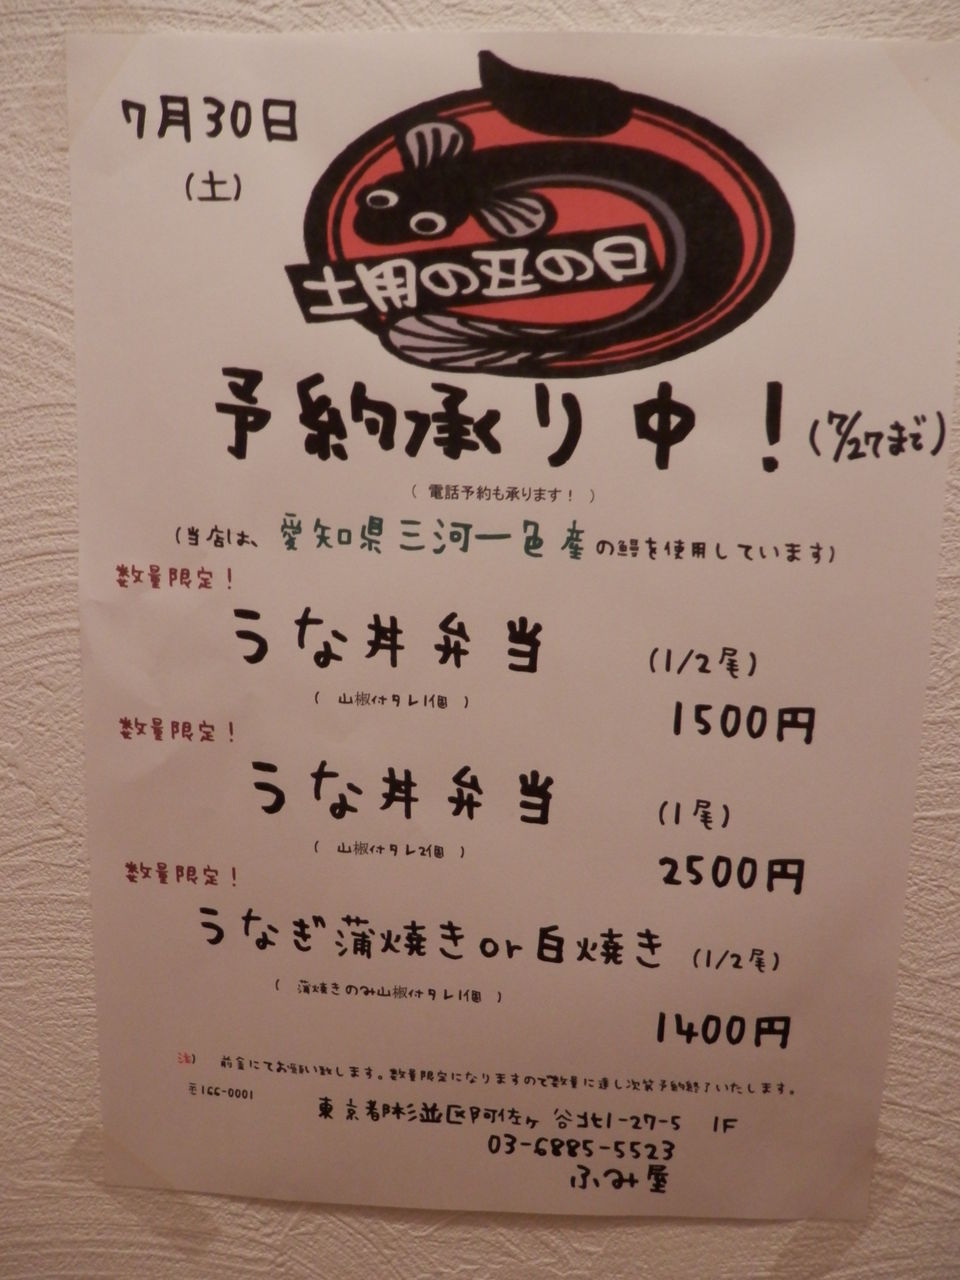 7月30日
(土)
土用の丑の日
予約承り中！(7/27まで)
( 電話予約も承ります！ )
(当店は、愛知県三河一色産の鰻を使用しています)
数量限定！
うな丼弁当 (1/2尾)
( 山椒付タレ1個 )
1500円
数量限定！
うな丼弁当 (1尾)
( 山椒付タレ2個 )
2500円
数量限定！
うなぎ蒲焼きor白焼き (1/2尾)
( 蒲焼きのみ山椒付タレ1個 )
1400円
注) 前金にてお願い致します。数量限定になりますので数量に達し次第予約終了いたします。
〒166-0001
東京都杉並区阿佐ヶ谷北1-27-5 1F
03-6885-5523
ふみ屋